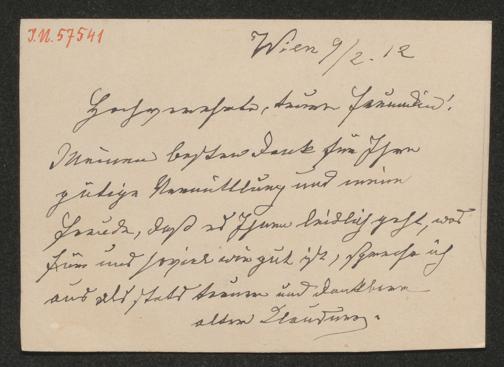 I.N. 57541
Wien 9/2. 12
Hochverehrte, teure Freundin!
Meinen besten Dank für Ihre
gütige Vermittlung und meine
Freude, daß es Ihnen leidlich geht, was
für uns soviel wie gut ist, spreche ich
aus als stets treuer und dankbarer
alter